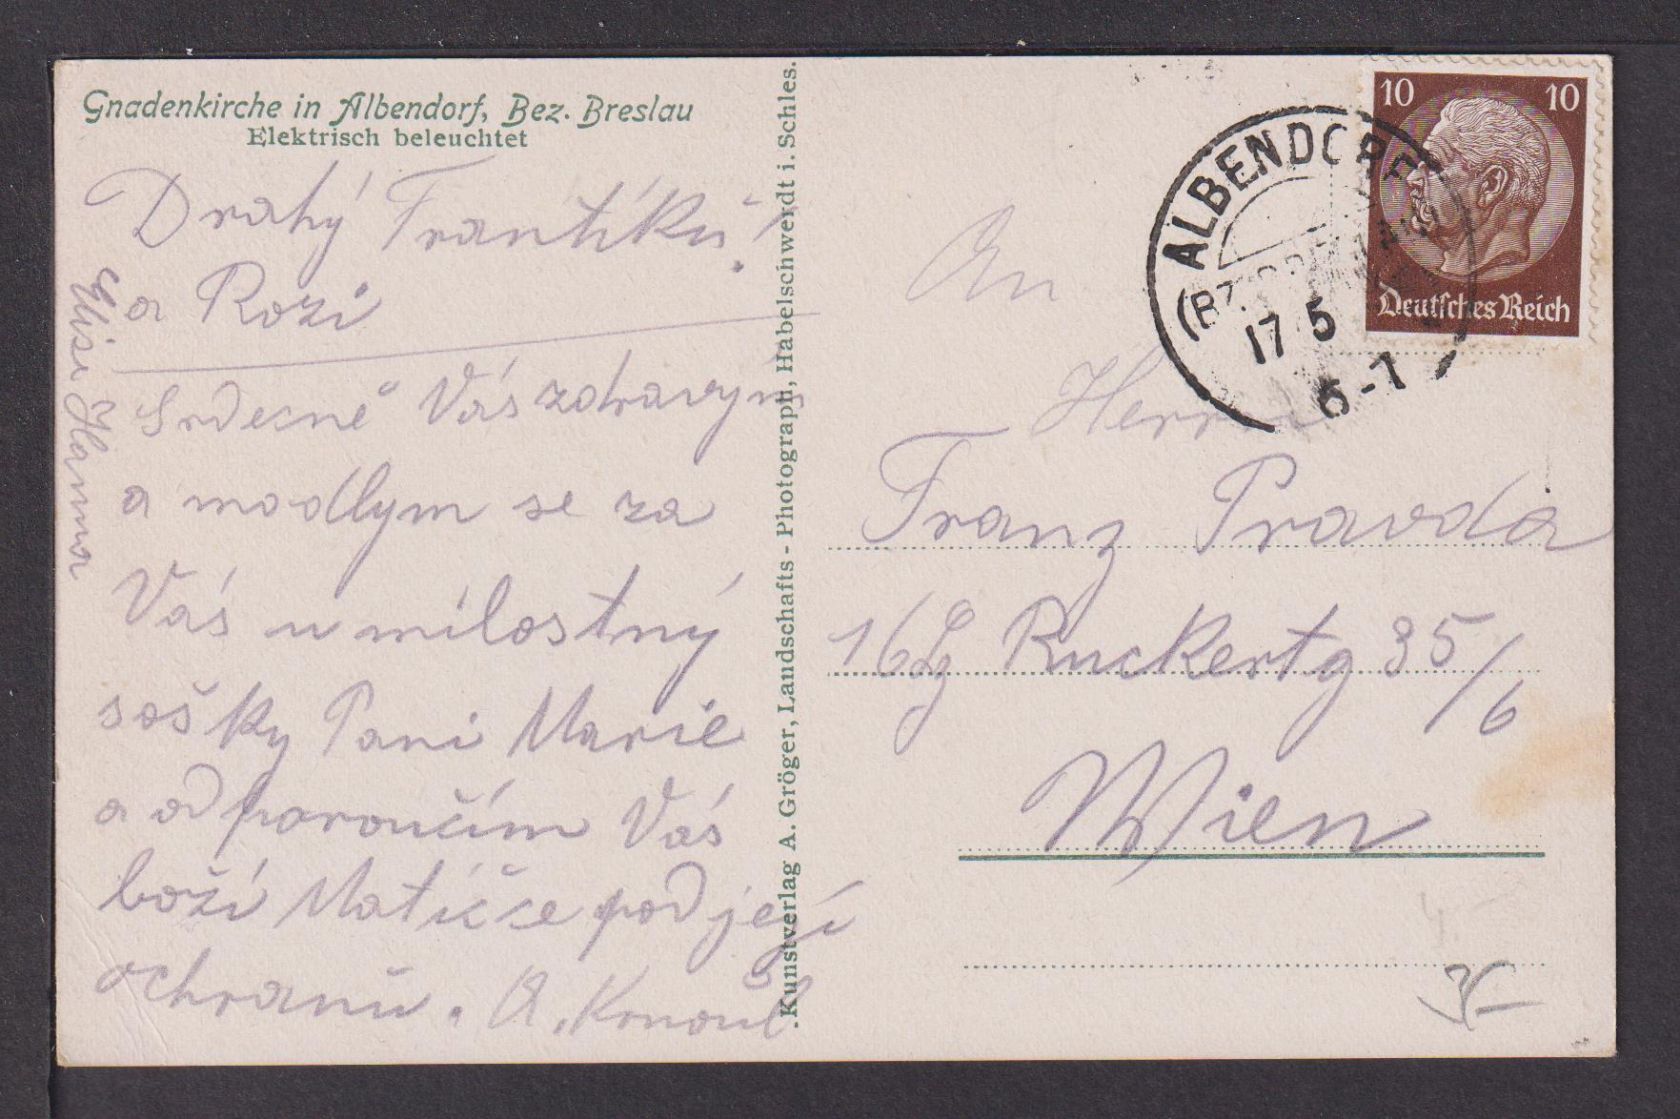 Gnadenkirche in Albendorf, Bez. Breslau
Elektrisch beleuchtet
Drahý Frantíku!
a Rozi
Srdecně Vás zdravým
a modlym se za
Vás u mílostný
sošky Pani Marie
a odporoučím Vás
boží Matičce pod její
ochranu. A. Krnoul
Elise Hanna
.Kunstverlag A. Gröger, Landschafts - Photograph, Habelschwerdt i. Schles.
10 10
Deutsches Reich
ALBENDORF
17 5
6-7
An
Herrn
Franz Pravda
16 Ruckertg 35/6
Wien